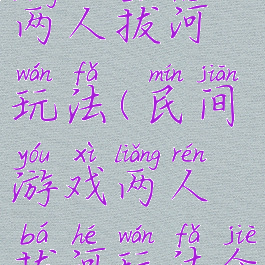 两人拔河
wán fǎ mín jiān
玩法(民间
yóu xì liǎng rén
游戏两人
bá hé wán fǎ jiě
拔河玩法介